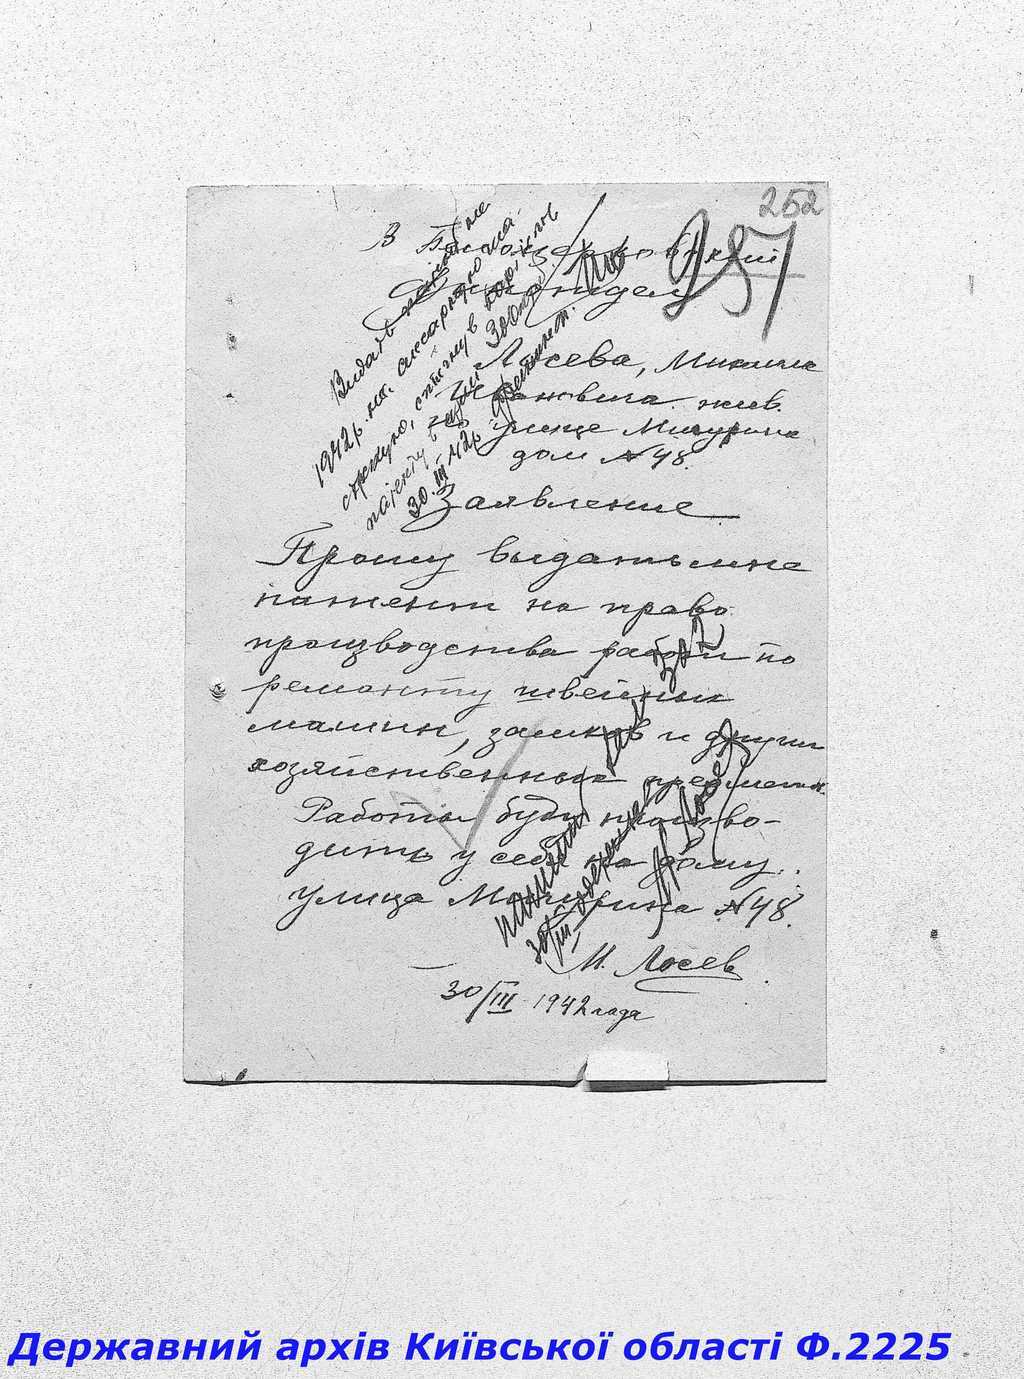 252
257
В Белоцерковский
Финотдел
Лосева, Михаила
Ивановича жив.
улице Мичурина
дом №48.
Заявление
Прошу выдать мне
патент на право
производства работы по
ремонту швейных
машин, замков и других
хозяйственных предметов.
Работы буду произво-
дить у себя на дому.
улица Мичурина №48.
М. Лосев
30/III 1942 года
Видать патент на
1942 р. на слюсарную ма-
стерную, стягнув вартість
патенту в сумі 300 крб
30.III.42р.
патент
30/III
Державний архів Київської області Ф.2225